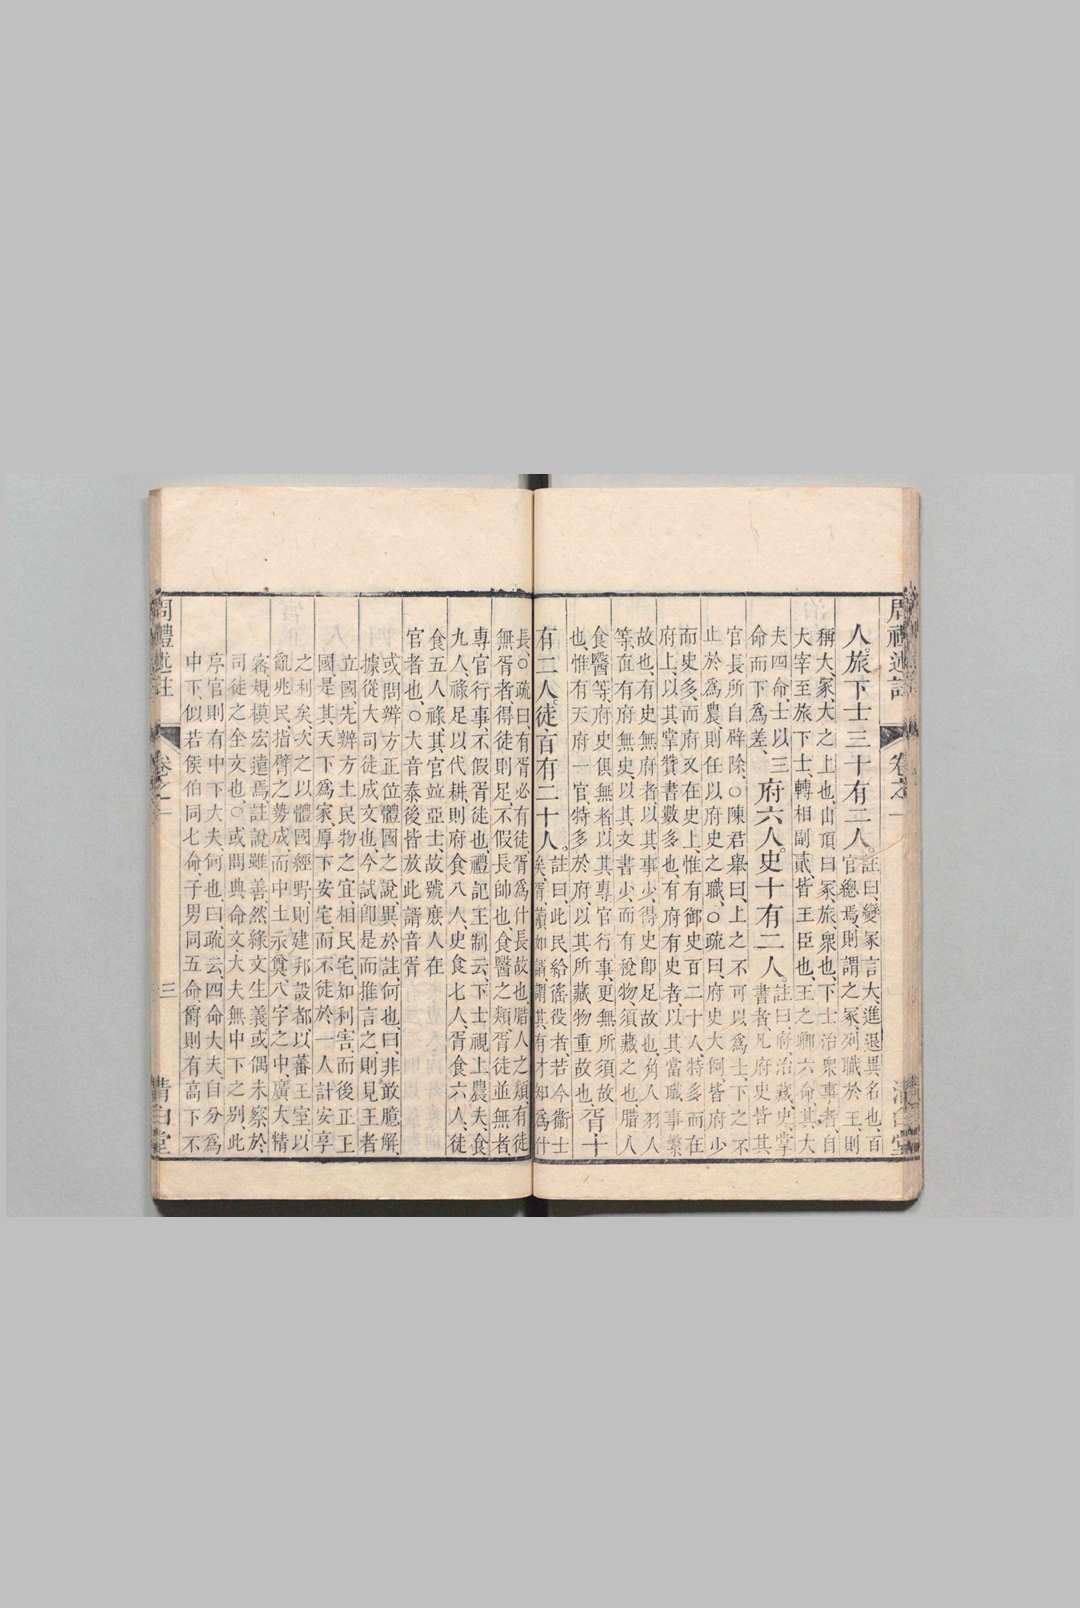 周禮述註 卷之一 清白堂
人旅下士三十有二人。註曰變冢言大進退異名也百官總焉則謂之冢列職於王則
稱大冢大之上也山頂曰冢旅衆也下士治衆事者自
大宰至旅下士轉相副貳皆王臣也王之卿六命其大
夫四命士以三命而下爲差、府六人。史十有二人。註曰府治藏史掌書者凡府史皆其
官長所自辟除○陳君舉曰上之不可以爲士下之不
止於爲農則任以府史之職○疏曰府史大例皆府少
而史多而府又在史上惟有御史百二十人特多而在
府上以其掌贊書數多也有府有史者以其當職事繁
故也有史無府者以其事少得史卽足故也角人羽人
等直有府無史以其文書少而有稅物須藏之也腊人
食醫等府史俱無者以其專官行事更無所須故
也惟有天府一官特多於府以其所藏物重故也、胥十
有二人。徒百有二十人。註曰此民給徭役者若今衞士矣胥讀如諝謂其有才知爲什
長○疏曰有胥必有徒胥爲什長故也腊人之類有徒
無胥者得徒則足不假長帥也食醫之類胥徒並無者
專官行事不假胥徒也禮記王制云下士視上農夫食
九人祿足以代耕則府食八人史食七人胥食六人徒
食五人祿其官並亞士故號庶人在
官者也○大音泰後皆放此諝音胥
或問辨方正位體國之說異於註何也曰非敢臆解
據從大司徒成文也今試卽是而推言之則見王者
立國先辨方土民物之宜相民宅知利害而後正王
國是其天下爲家厚下安宅而不徒於一人計安享
之利矣次之以體國經野則建邦設都以蕃王室以
亂兆民指臂之勢成而中土永奠八字之中廣大精
密規模宏遠焉註說雖善然緣文生義或偶未察於
司徒之全文也○或問典命文大夫無中下之别此
序官則有中下大夫何也曰疏云四命大夫自分爲
中下似若侯伯同七命子男同五命爵則有高下不
周禮述註 卷之一 三 清白堂